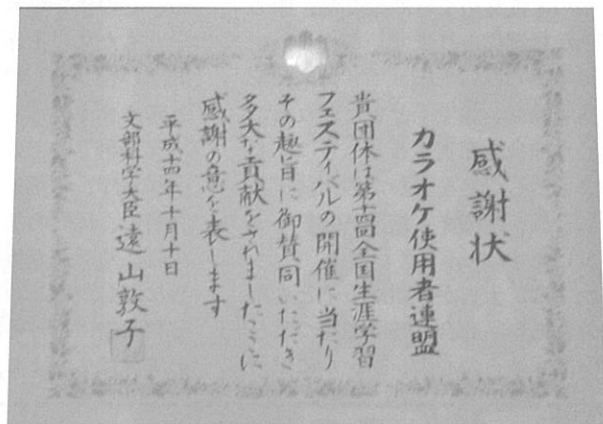 感謝状
カラオケ使用者連盟
貴団体は第十四回全国生涯学習
フェスティバルの開催に当たり
その趣旨に御賛同いただき
多大な貢献をされましたことに
感謝の意を表します
平成十四年十月十日
文部科学大臣 遠山敦子